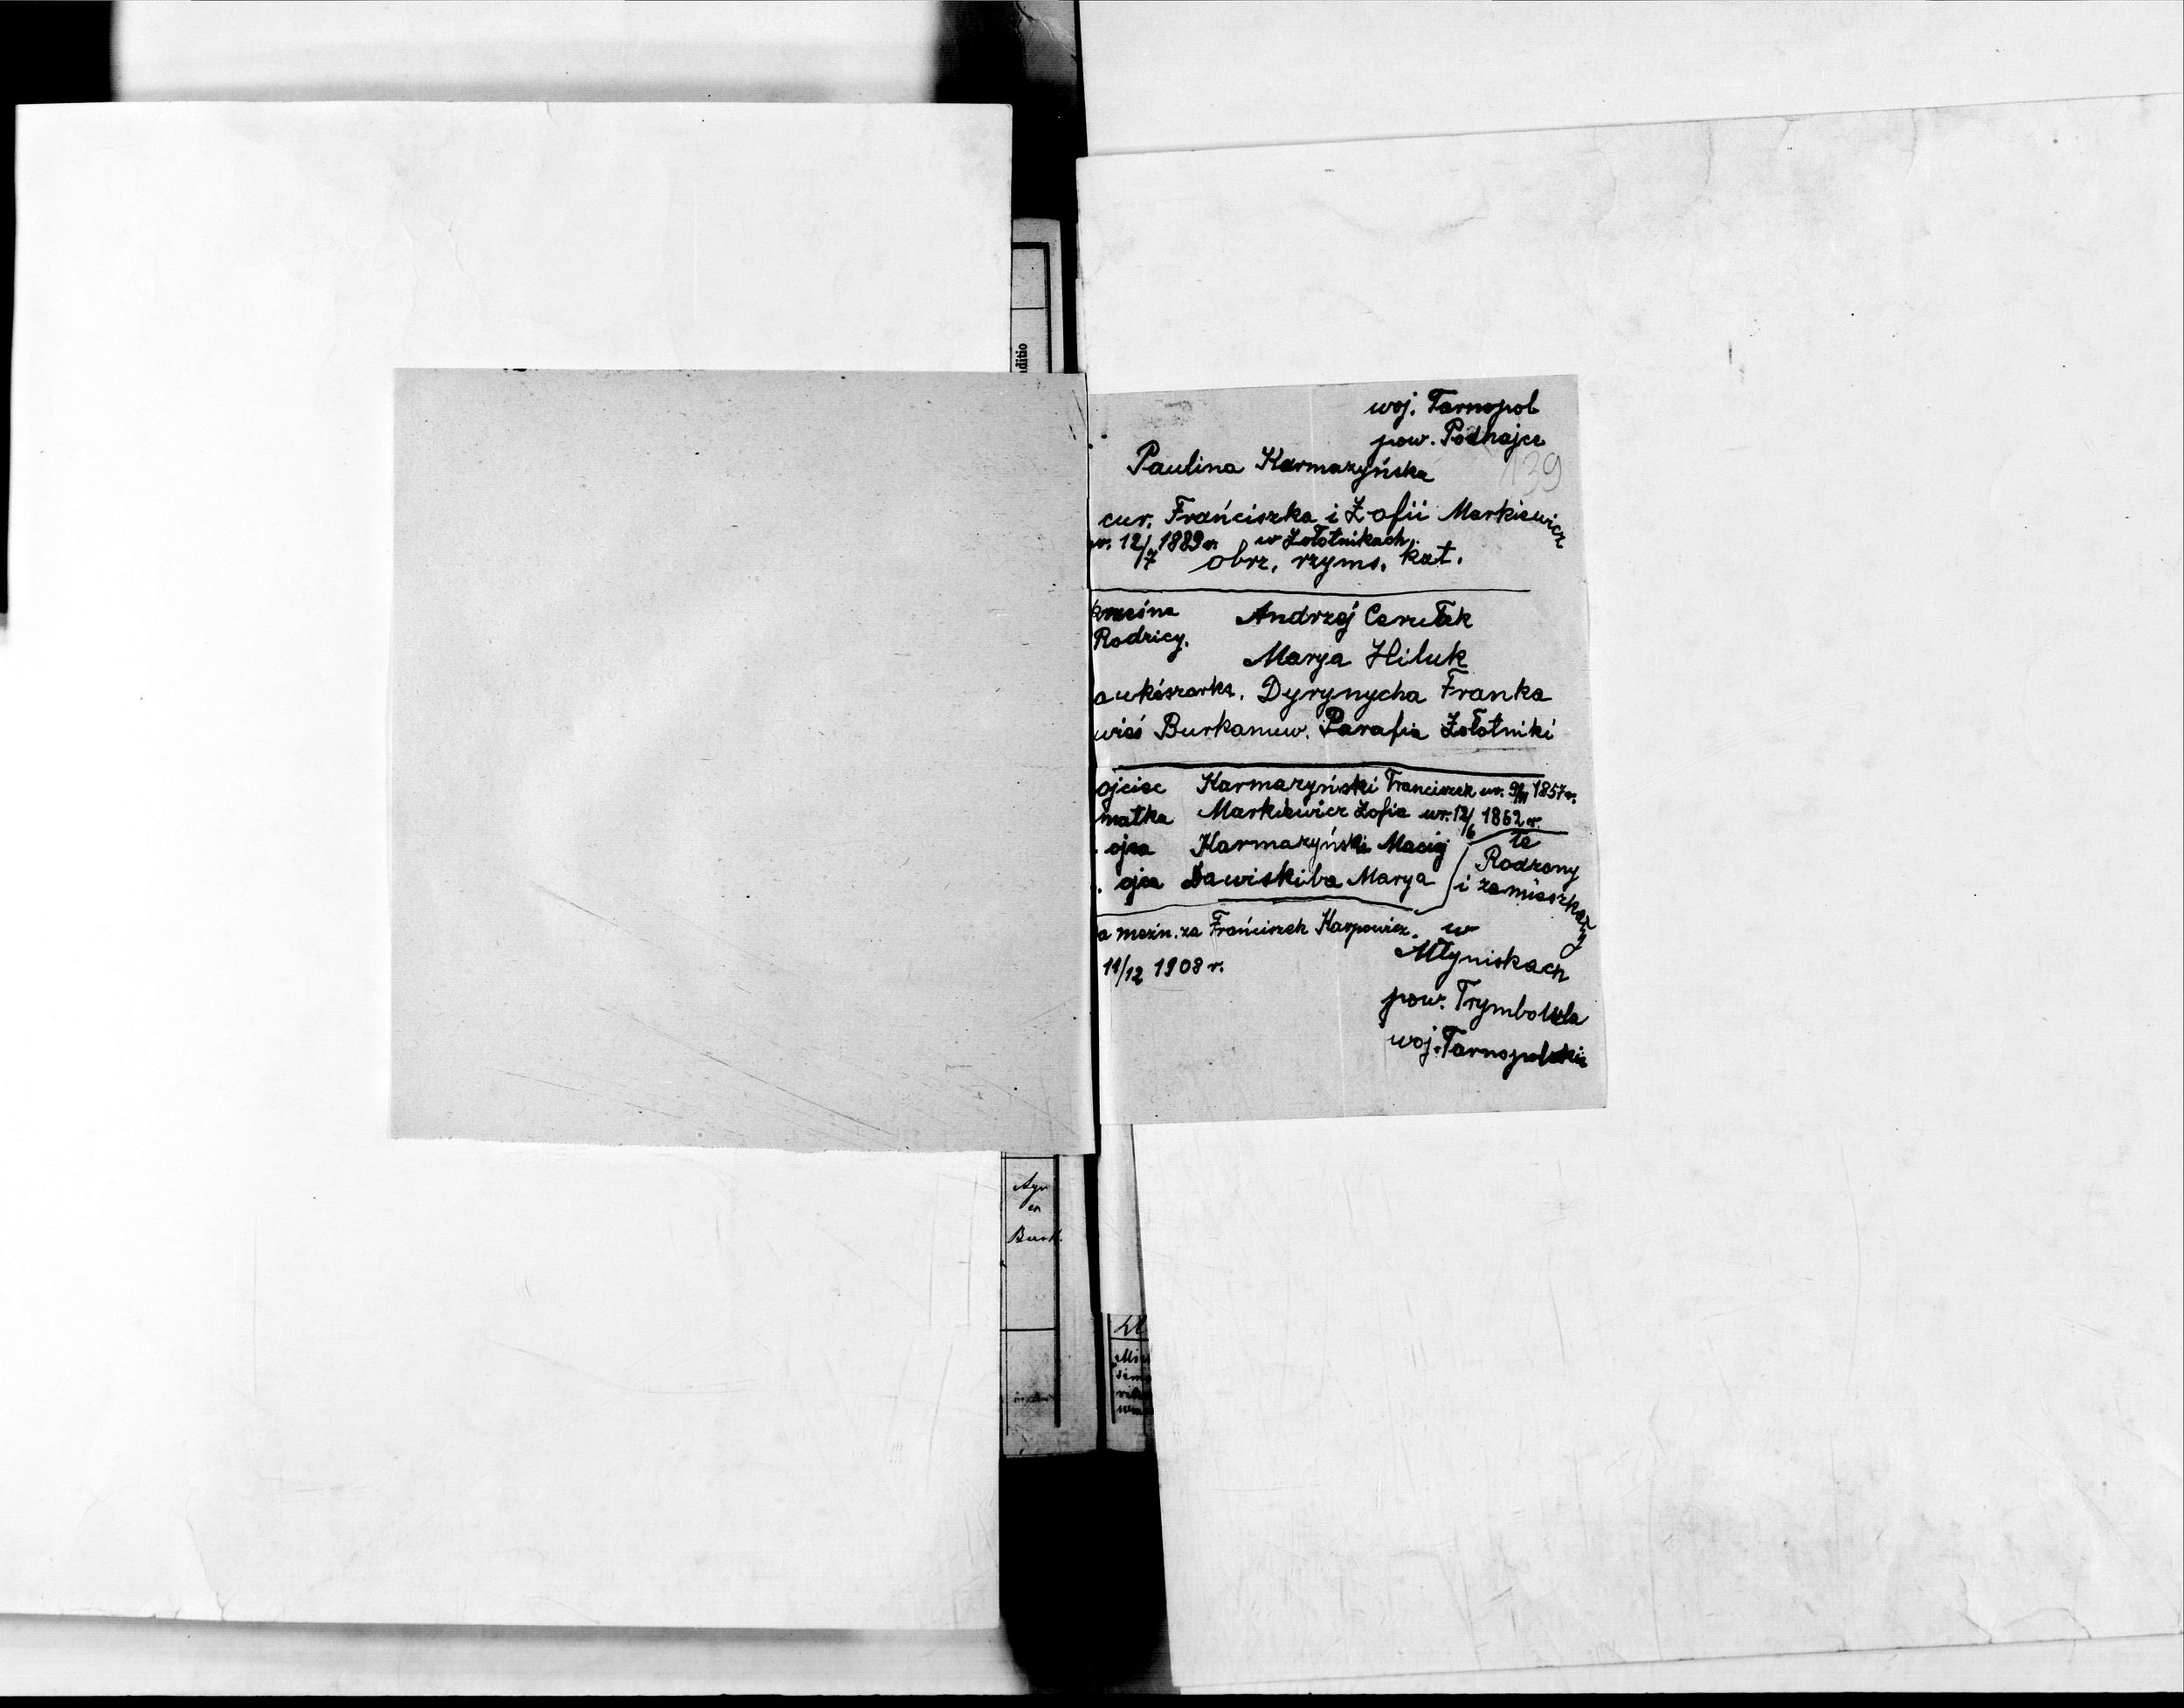 woj. Tarnopol
pow. Podhajce
139
Paulina Karmazyńska
cur. Frańciszka i Zofii Markiewicz
ur. 12/7 1889 r. w Zołotnikach.
obrz. rzyms. kat.
Rodzicy.
Andrzej Cerulak
Marya Hiluk
akuszarka. Dyrynycha Franka
wieś Burkanuw. Parafia Zołotniki
ojciec Karmazyński Franciszek ur. 1857 r.
matka Markiewicz Zofia ur. 12/6 1862 r.
ojca Karmazyński Maciej
ojca Dawiskiba Marya
te
Rodzony
i zamieszkały
w
Młyniskach
pow. Trymbowla
woj. Tarnopolskie
za Frańciszek Karpowicz.
11/12 1908 r.
ditio
Agr
Burk.